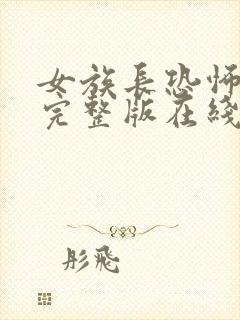 女族长恐怖
完整版在线
彤飛